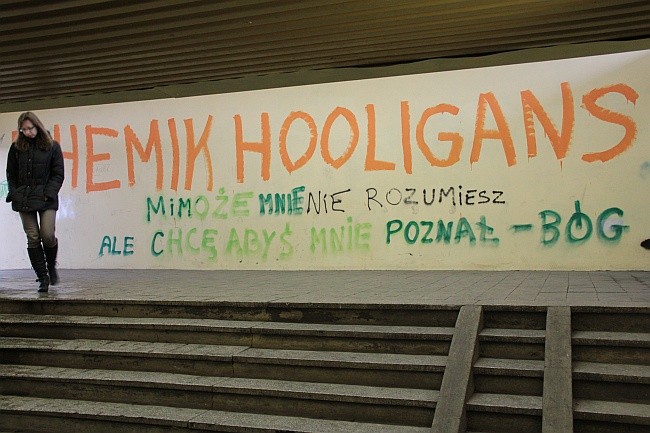 CHEMIK HOOLIGANS
MIMOŻE MNIE NIE ROZUMIESZ
ALE CHCĘ ABYŚ MNIE POZNAŁ – BÓG